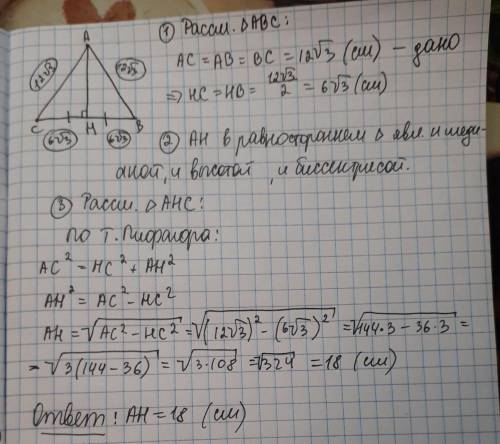 A
12√3
12√3
C
H
B
6√3
6√3
① Рассм. △ABC:
AC = AB = BC = 12√3 (см) – дано
⇒ HC = HB = 12√3/2 = 6√3 (см)
② AH в равностороннем △ явл. и меди-
аной, и высотой, и биссектрисой.
③ Рассм. △AHC:
по т. Пифагора:
AC² = HC² + AH²
AH² = AC² – HC²
AH = √(AC² – HC²) = √((12√3)² – (6√3)²) = √(144·3 – 36·3) =
= √(3(144 – 36)) = √(3·108) = √324 = 18 (см)
Ответ: AH = 18 (см)